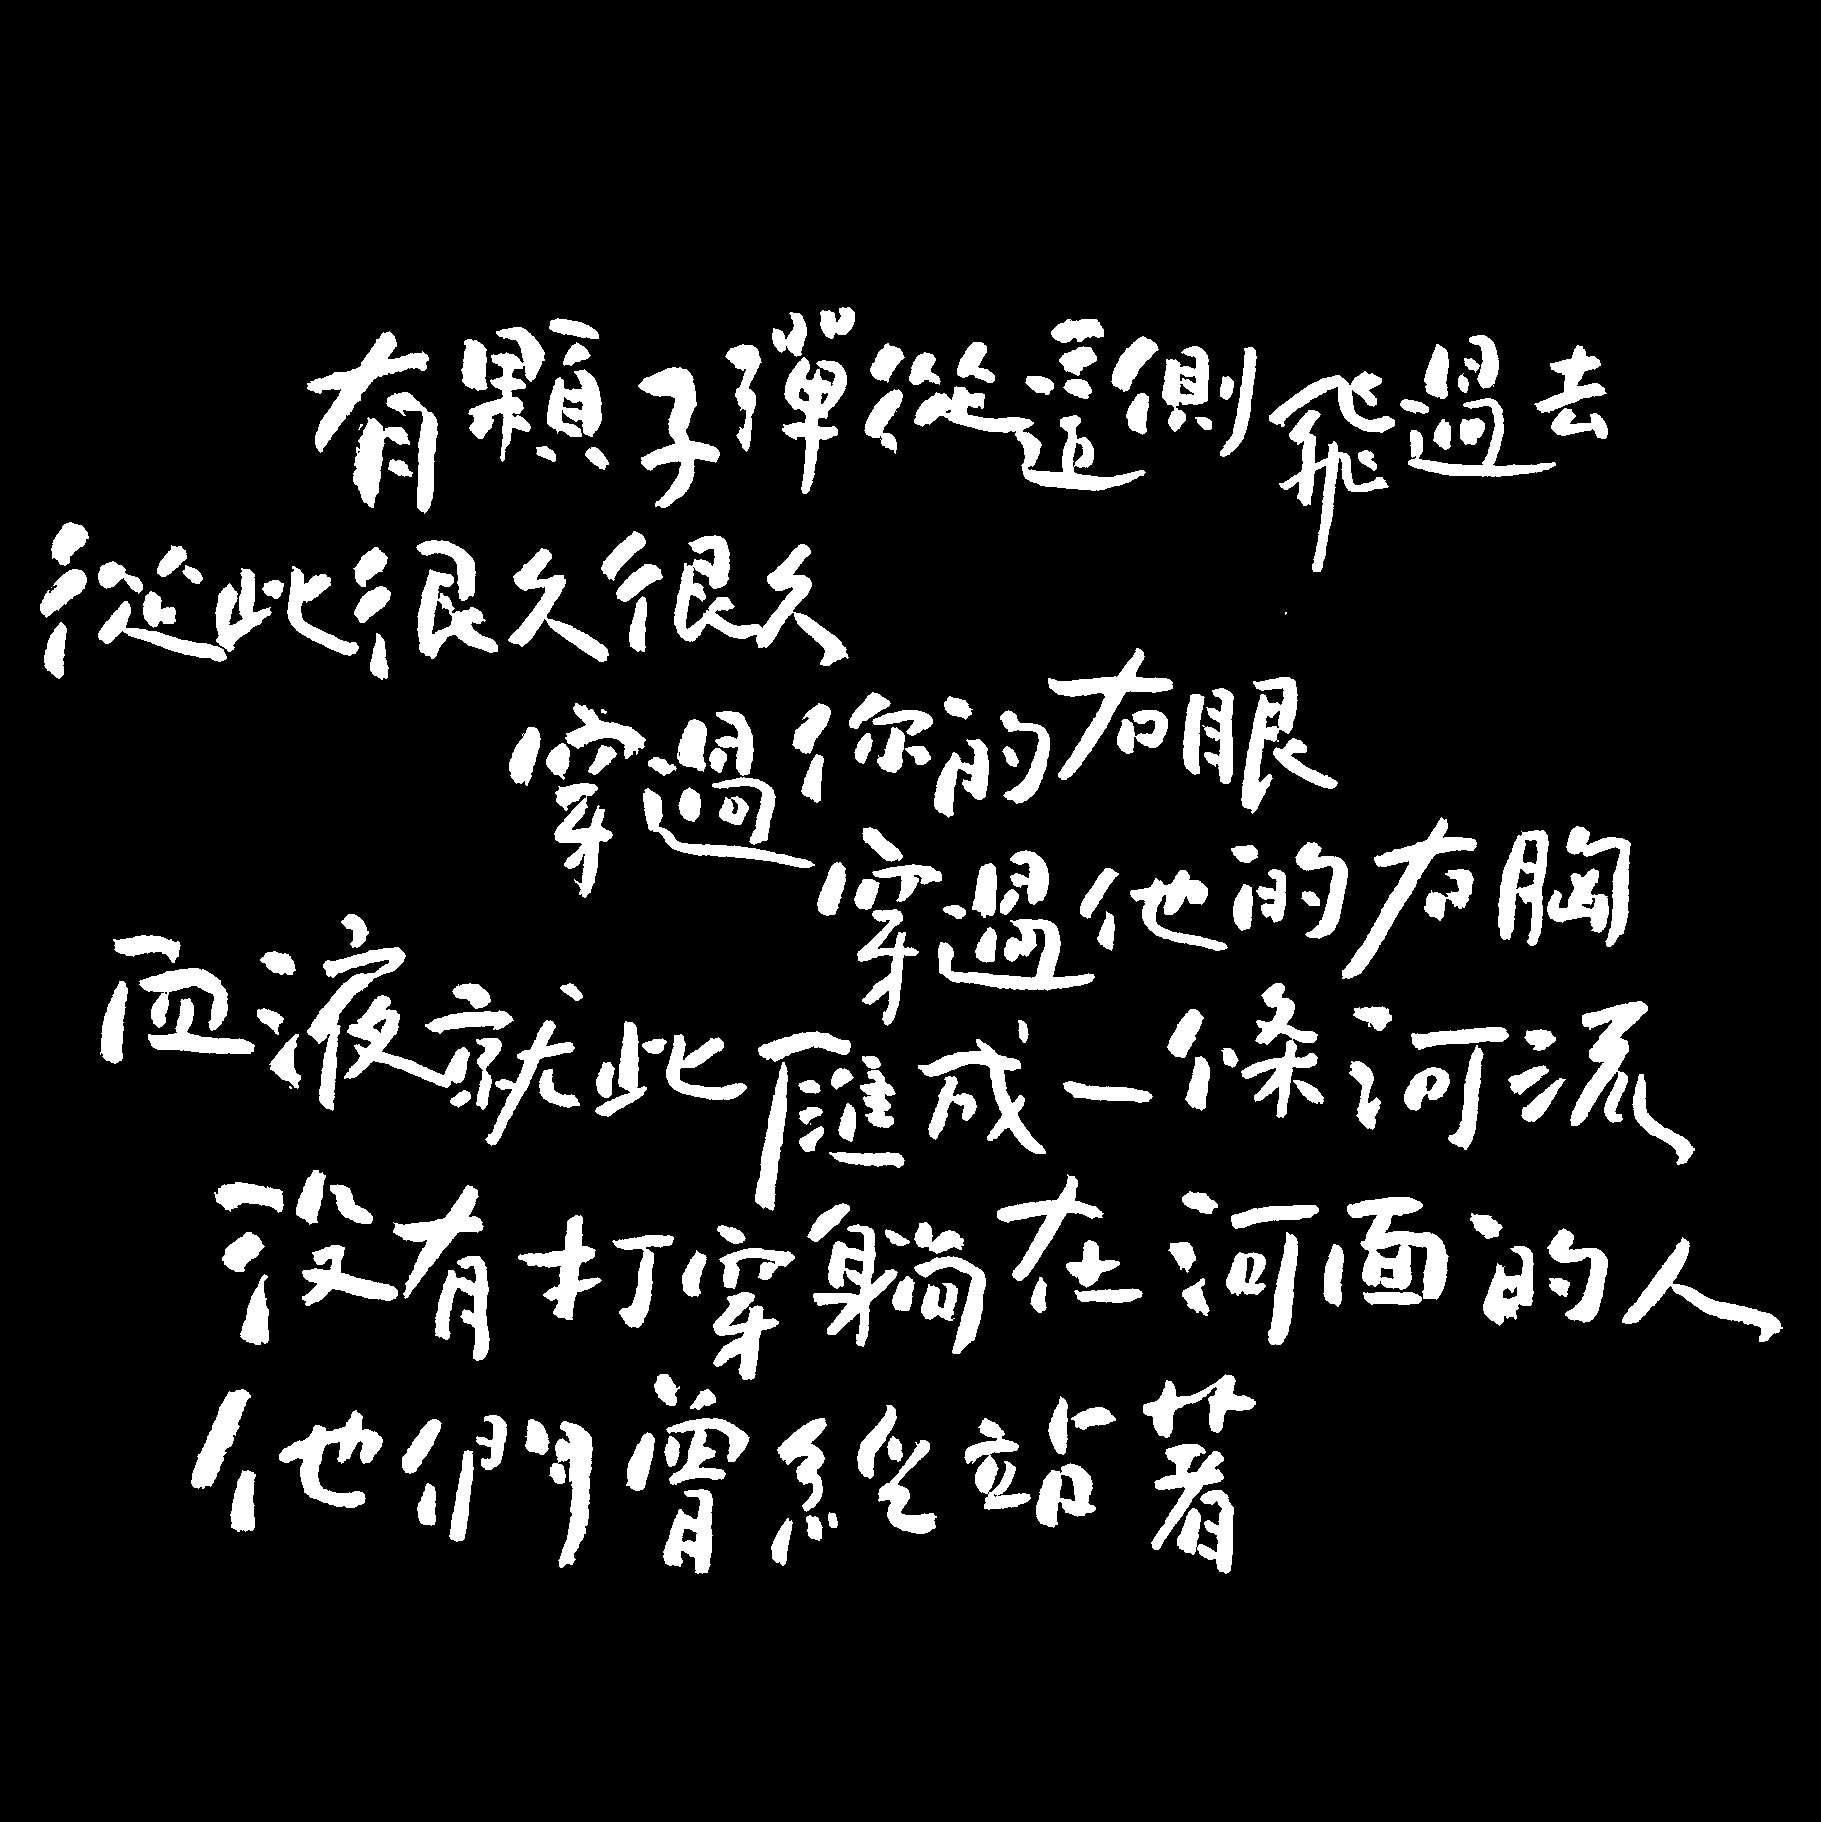 有顆子彈從這側飛過去
從此很久很久
穿過你的右眼
穿過他的右胸
血液就此匯成一條河流
沒有打穿躺在河面的人
他們曾經站著